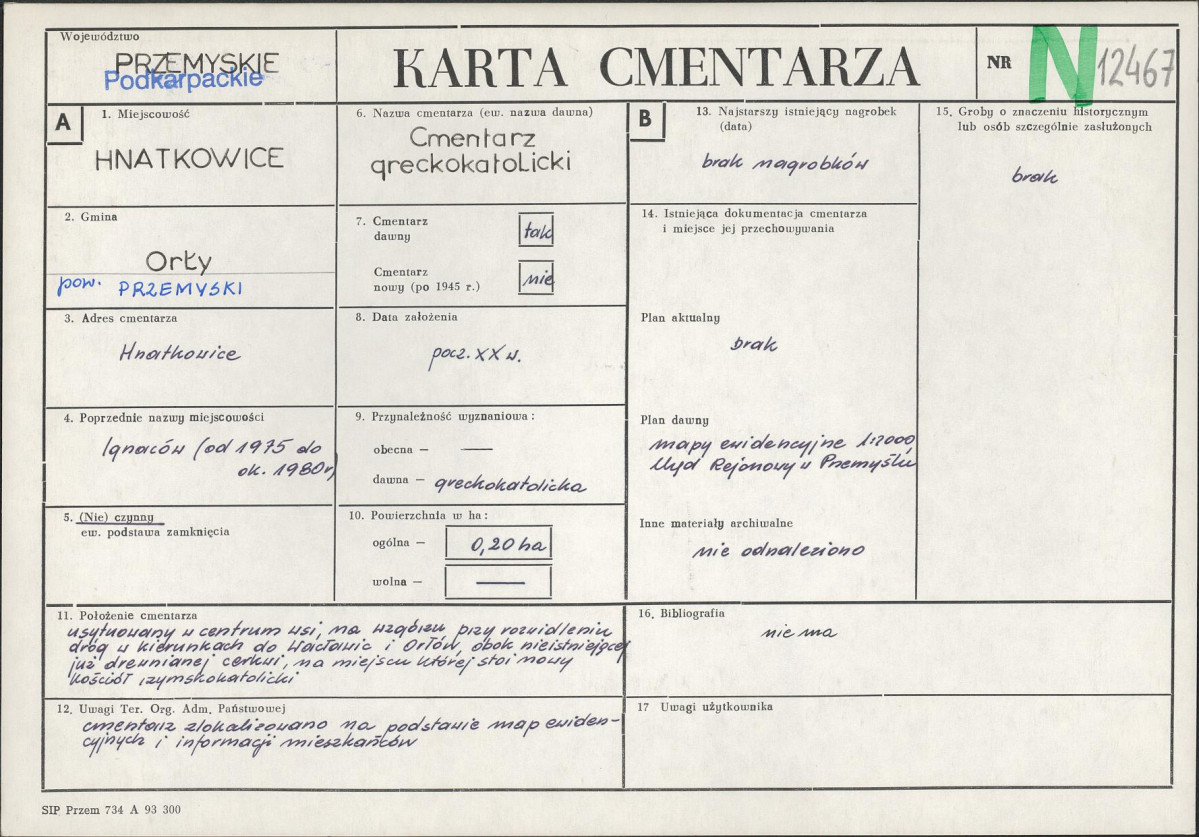 Województwo
PRZEMYSKIE
Podkarpackie
KARTA CMENTARZA
NR
N 12467
A
1. Miejscowość
HNATKOWICE
2. Gmina
Orły
pow. PRZEMYSKI
3. Adres cmentarza
Hnatkowice
4. Poprzednie nazwy miejscowości
Ignaców (od 1975 do
ok. 1980r)
5. (Nie) czynny
ew. podstawa zamknięcia
6. Nazwa cmentarza (ew. nazwa dawna)
Cmentarz
greckokatolicki
7. Cmentarz
dawny
tak
Cmentarz
nowy (po 1945 r.)
nie
8. Data założenia
pocz. XX w.
9. Przynależność wyznaniowa:
obecna — —
dawna — greckokatolicka
10. Powierzchnia w ha:
ogólna — 0,20 ha
wolna — —
11. Położenie cmentarza
usytuowany w centrum wsi, na wzgórzu przy rozwidleniu
dróg w kierunkach do Wacławic i Orłów, obok nieistniejącej
już drewnianej cerkwi, na miejscu której stoi nowy
kościół rzymskokatolicki
12. Uwagi Ter. Org. Adm. Państwowej
cmentarz zlokalizowano na podstawie map ewiden-
cyjnych i informacji mieszkańców
B
13. Najstarszy istniejący nagrobek
(data)
brak nagrobków
14. Istniejąca dokumentacja cmentarza
i miejsce jej przechowywania
Plan aktualny
brak
Plan dawny
mapy ewidencyjne 1:2000
Urząd Rejonowy w Przemyślu
Inne materiały archiwalne
nie odnaleziono
15. Groby o znaczeniu historycznym
lub osób szczególnie zasłużonych
brak
16. Bibliografia
nie ma
17 Uwagi użytkownika
SIP Przem 734 A 93 300